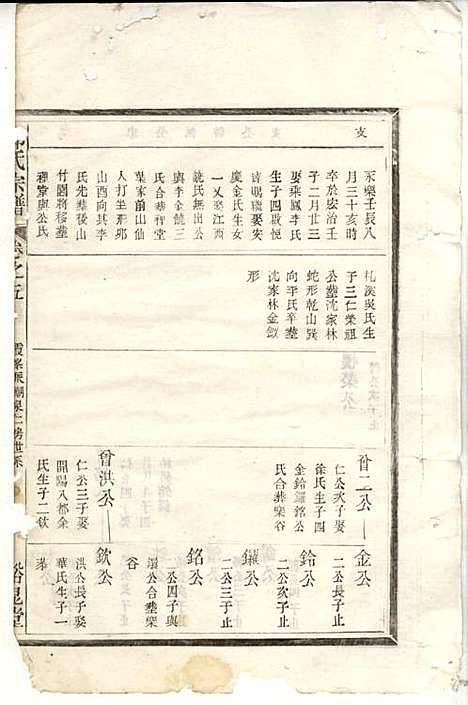 支
永樂壬辰八
月三十亥時
卒於宏治壬
子二月廿三
娶乘鳳李氏
生子四啟悅
睹昛聰娶安
慶金氏生女
一乂娶江西
饒氏無出公
與李金饒三
氏合葬禪堂
葉家前山仙
人打坐形邓
山酉向其李
氏先葬後山
竹園將移葬
禪堂與公氏
札溪吳氏生
子三仁榮祖
公葬沈家林
蛇形乾山巽
向平氏辛葬
沈家林金釵
形
曾二公
仁公次子娶
徐氏生子四
金鉿鑼銘公
氏合葬欒谷
曾洪公
仁公三子娶
開陽八都余
氏生子二欽
金公
二公長子止
鉿公
二公次子止
鑼公
二公三子止
銘公
二公四子與
鑼公合葬欒
谷
欽公
洪公長子娶
華氏生子一
氏宗譜
卷之五
裕昆堂